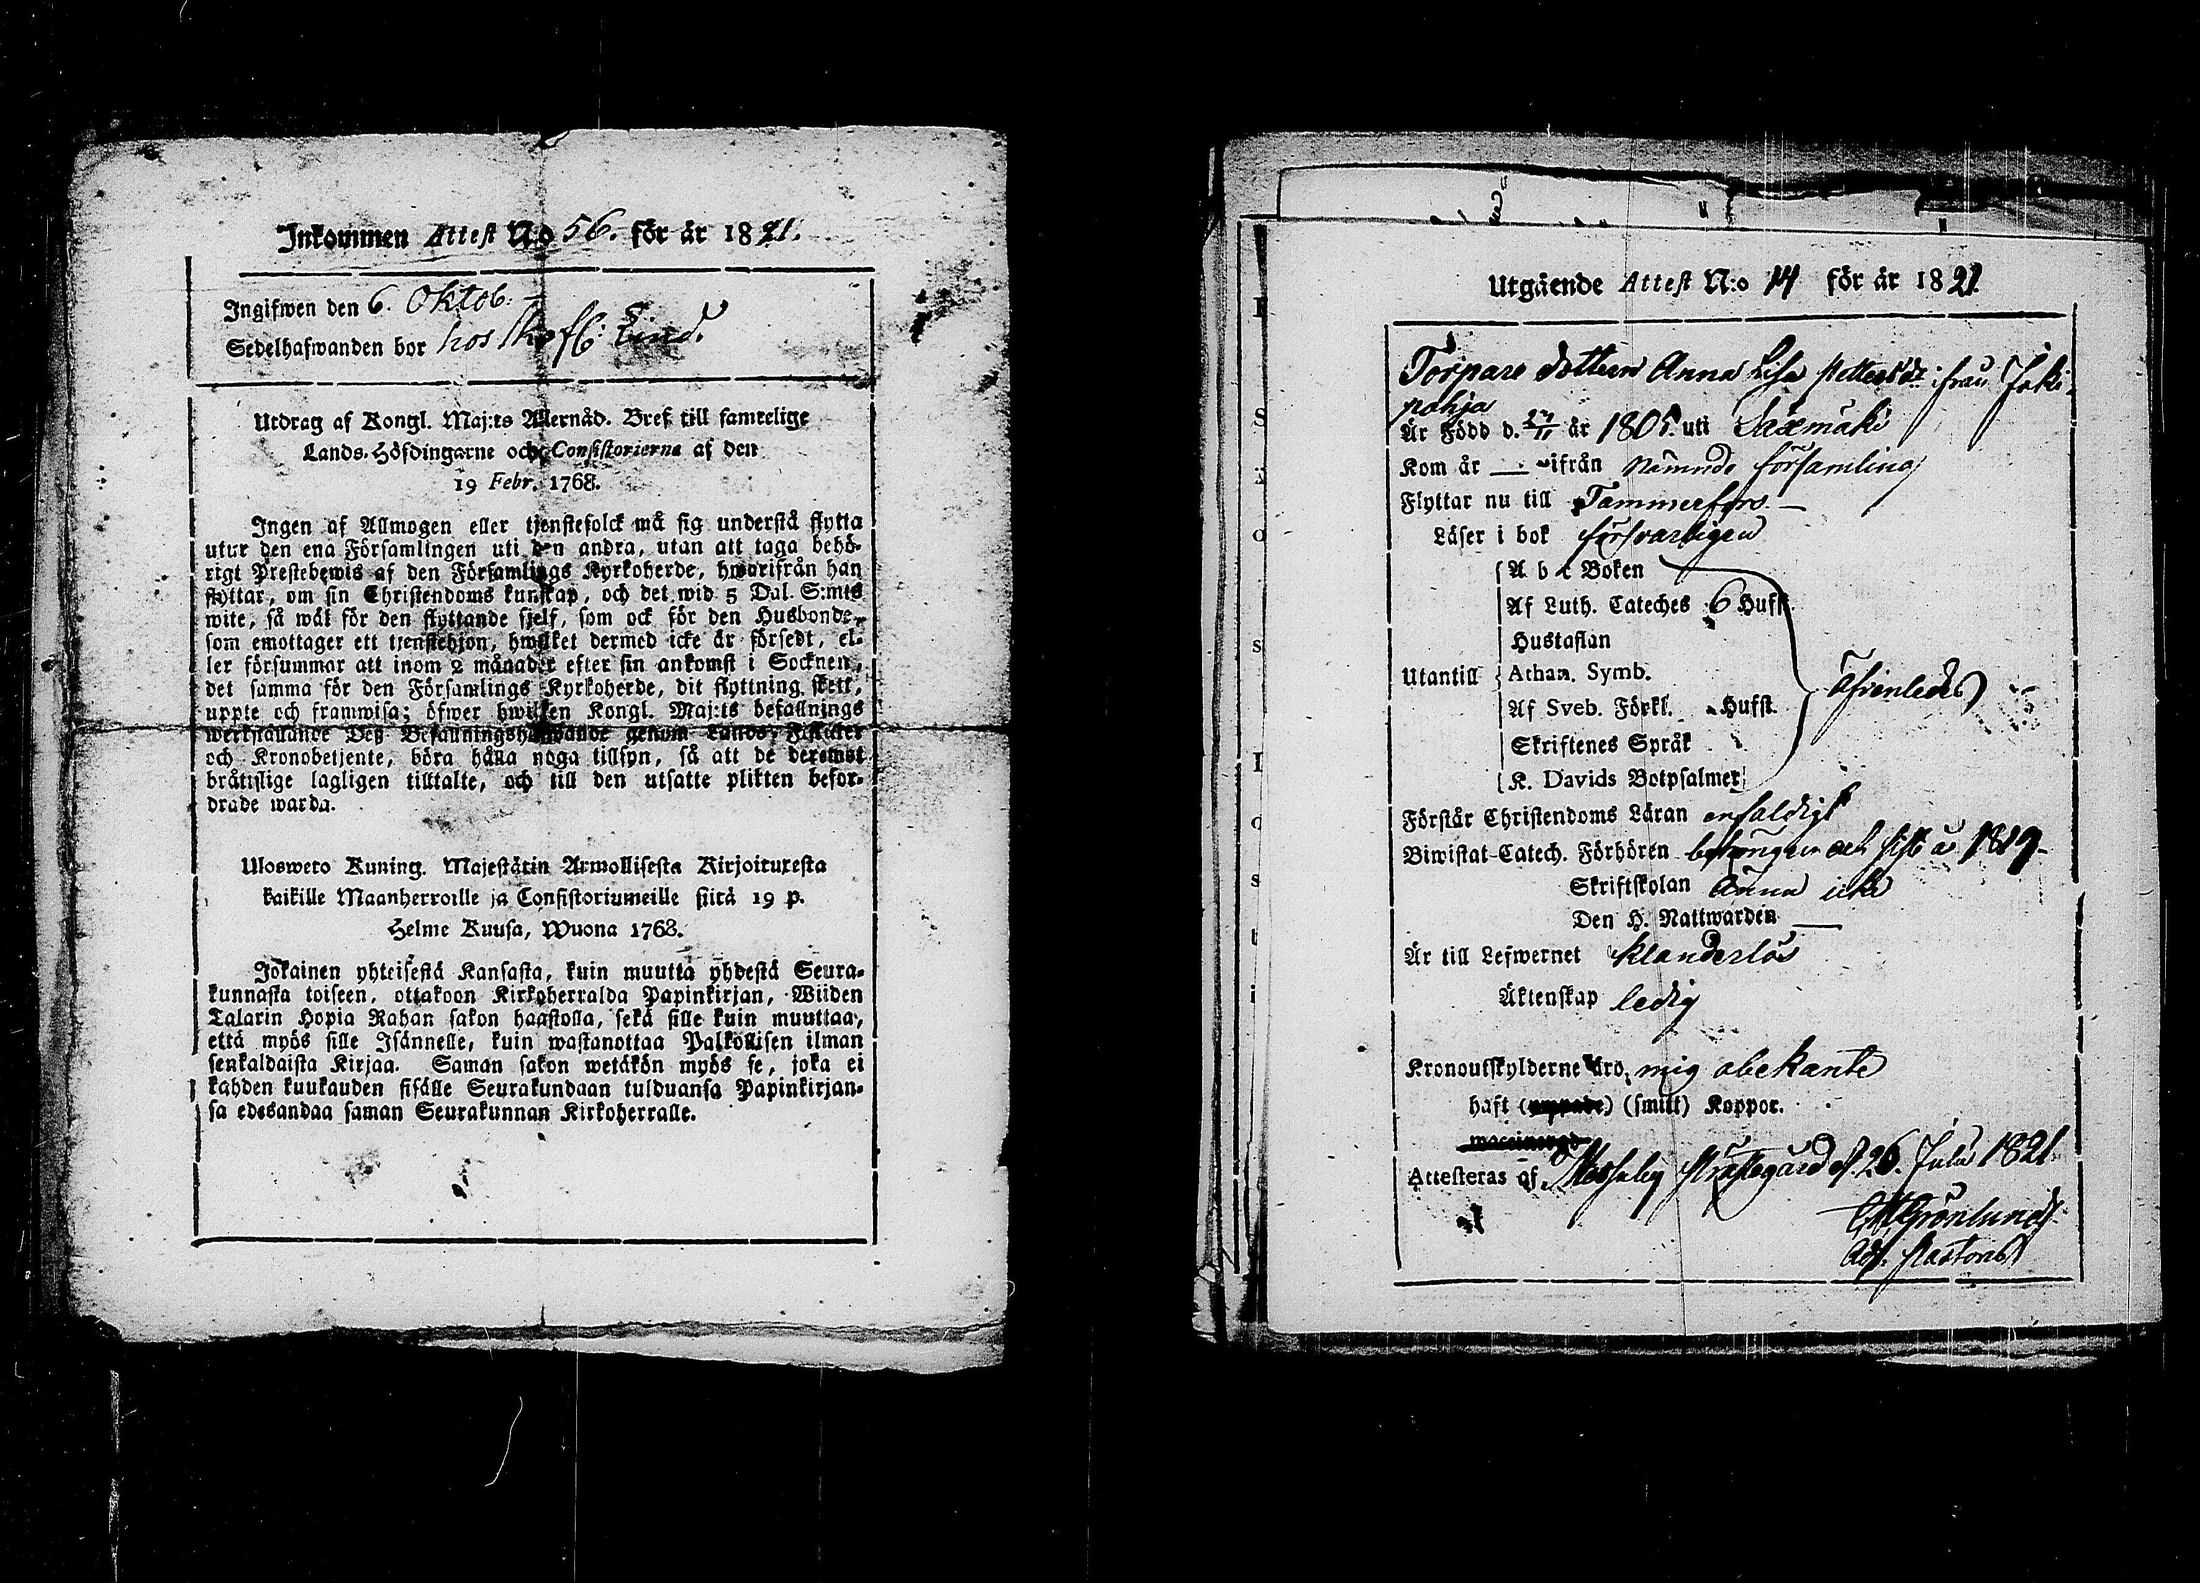 Inkommen Attest No 56. för år 1821.
Ingifwen den 6. Oktob:
Sedelhafwanden bor hos Lind.
Utdrag af Kongl. Maj:ts Allernåd. Bref till samtelige
Lands-Höfdingarne och Consistorierna af den
19 Febr. 1768.
Ingen af Allmogen eller tjenstefolck må sig understå flytta
utur den ena Församlingen uti den andra, utan att taga behö-
rigt Prestebewis af den Församlings Kyrkoherde, hwarifrån han
flyttar, om sin Christendoms kunskap, och det wid 5 Dal. S:mts
wite, så wäl för den flyttande sjelf, som ock för den Husbonde,
som emottager ett tjenstehjon, hwilket dermed icke är försedt, el-
ler försummar att inom 2 månader efter sin ankomst i Socknen,
det samma för den Församlings Kyrkoherde, dit flyttning skett,
uppte och framwisa; öfwer hwilken Kongl. Maj:ts befallnings
werkställande Deß Befallningshafwande genom Lands-Fiskaler
och Kronobetjente, böra hålla noga tillsyn, så att de deremot
bråttslige lagligen tilltalte, och till den utsatte plikten befor-
drade warda.
Ulosweto Kuning. Majestätin Armollisesta Kirjoituxesta
kaikille Maanherroille ja Consistoriumeille siitä 19 p.
Helme Kuusa, Wuona 1768.
Jokainen yhteisestä Kansasta, kuin muutta yhdestä Seura-
kunnasta toiseen, ottakoon Kirkoherralda Papinkirjan, Wiiden
Talarin Hopia Rahan sakon haastolla, sekä sille kuin muuttaa,
että myös sille Isännelle, kuin wastanottaa Palkollisen ilman
senkaldaista Kirjaa. Saman sakon wetäkön myös se, joka ei
kahden kuukauden sisälle Seurakundaan tulduansa Papinkirjan-
sa edesandaa saman Seurakunnan Kirkoherralle.
Utgående Attest N:o 14 för år 1821
Torpare dottern Anna Lisa Pettersdr ifrån Joki-
pohja
Är Född d. 27/11 år 1805. uti Saxmäki
Kom år — ifrån nämnde församling
Flyttar nu till Tammerfors —
Läser i bok försvarligen
A b c Boken
Af Luth. Cateches 6 Hufst.
Hustaflan
Utantill Athan. Symb.
Af Sveb. Förkl. Hufst.
Skriftenes Språk
K. Davids Botpsalmer
Förstår Christendoms Läran enfaldigt
Biwistat Catech. Förhören och sist å 1819
Skriftskolan ännu icke
Den H. Nattwarden —
Är till Lefwernet klanderlös
Äktenskap ledig
Kronoutskylderne äro mig obekante
haft (smitt) Koppor.
Attesteras af Messuby Prästegård d. 26. Julii 1821.
Grönlund
Adj. Pastoris